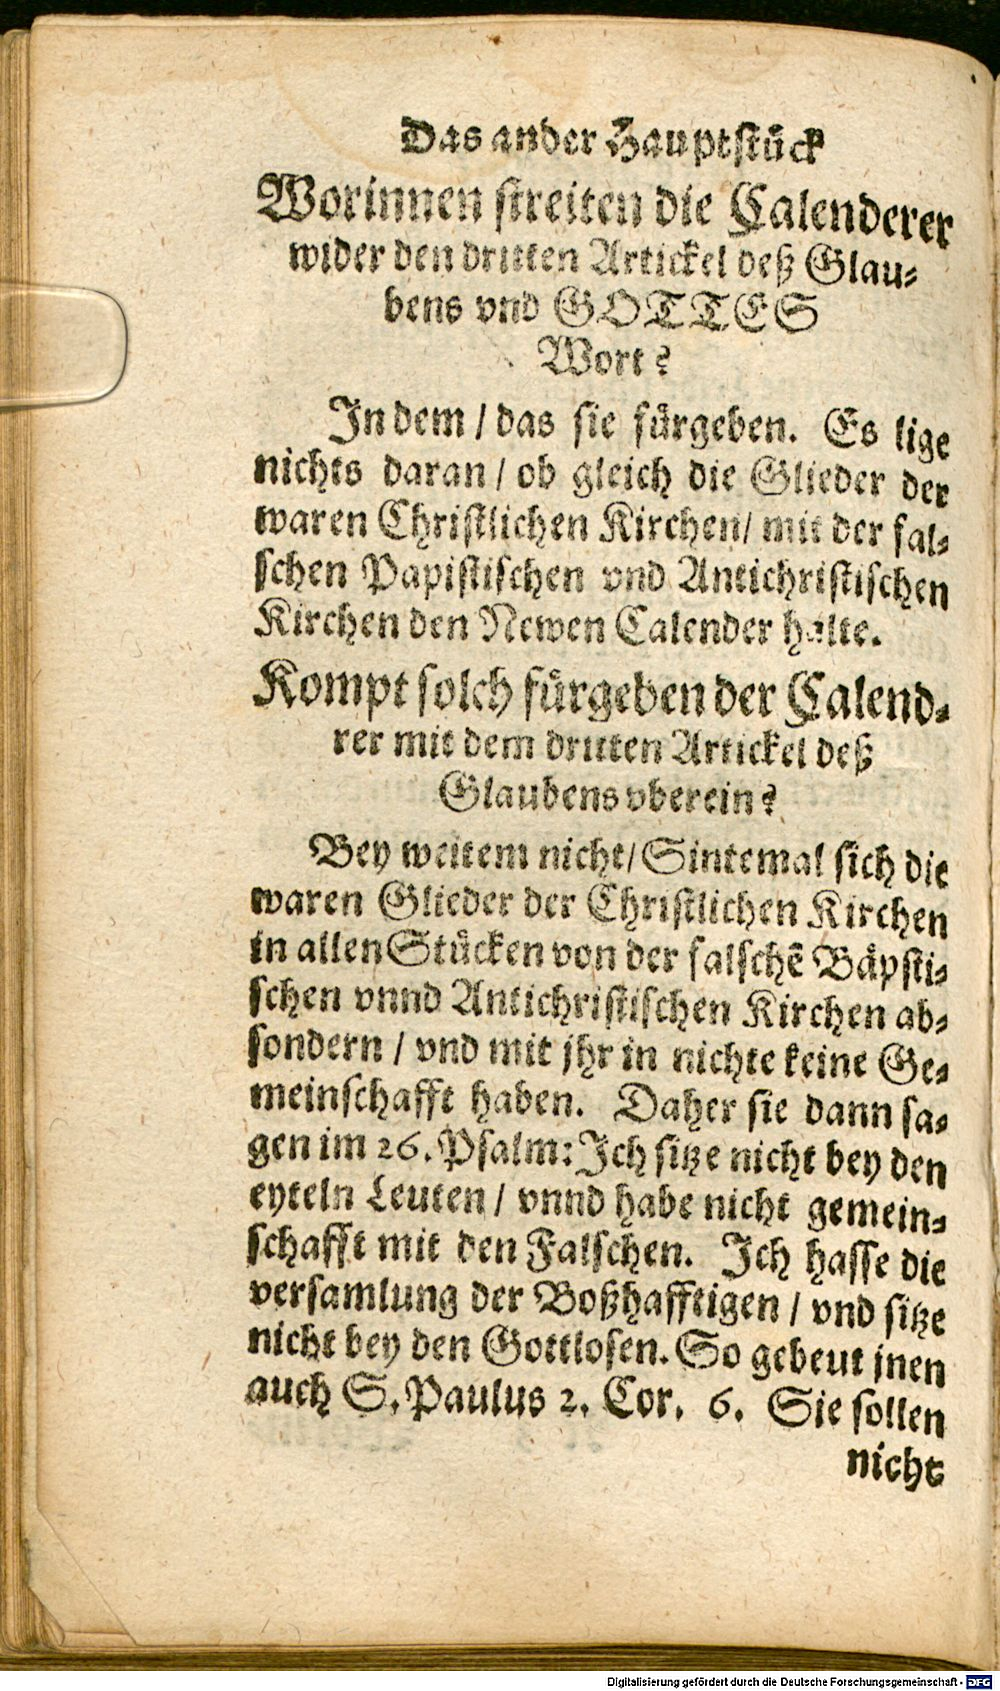 Das ander Hauptſtuͤck
Worinnen ſtreiten die Calenderer
wider den dritten Artickel deß Glau-
bens vnd GOTTES
Wort?
In dem / das ſie fuͤrgeben. Es lige
nichts daran / ob gleich die Glieder der
waren Chriſtlichen Kirchen / mit der fal-
ſchen Papiſtiſchen vnd Antichriſtiſchen
Kirchen den Newen Calender halte.
Kompt ſolch fuͤrgeben der Calend-
rer mit dem dritten Artickel deß
Glaubens vberein?
Bey weitem nicht / Sintemal ſich die
waren Glieder der Chriſtlichen Kirchen
in allen Stuͤcken von der falſchẽ Baͤpſti-
ſchen vnnd Antichriſtiſchen Kirchen ab-
ſondern / vnd mit jhr in nichte keine Ge-
meinſchafft haben. Daher ſie dann ſa-
gen im 26. Pſalm: Ich ſitze nicht bey den
eyteln Leuten / vnnd habe nicht gemein-
ſchafft mit den Falſchen. Ich haſſe die
verſamlung der Boßhafftigen / vnd ſitze
nicht bey den Gottloſen. So gebeut jnen
auch S. Paulus 2. Cor. 6. Sie ſollen
nicht
Digitalisierung gefördert durch die Deutsche Forschungsgemeinschaft - DFG